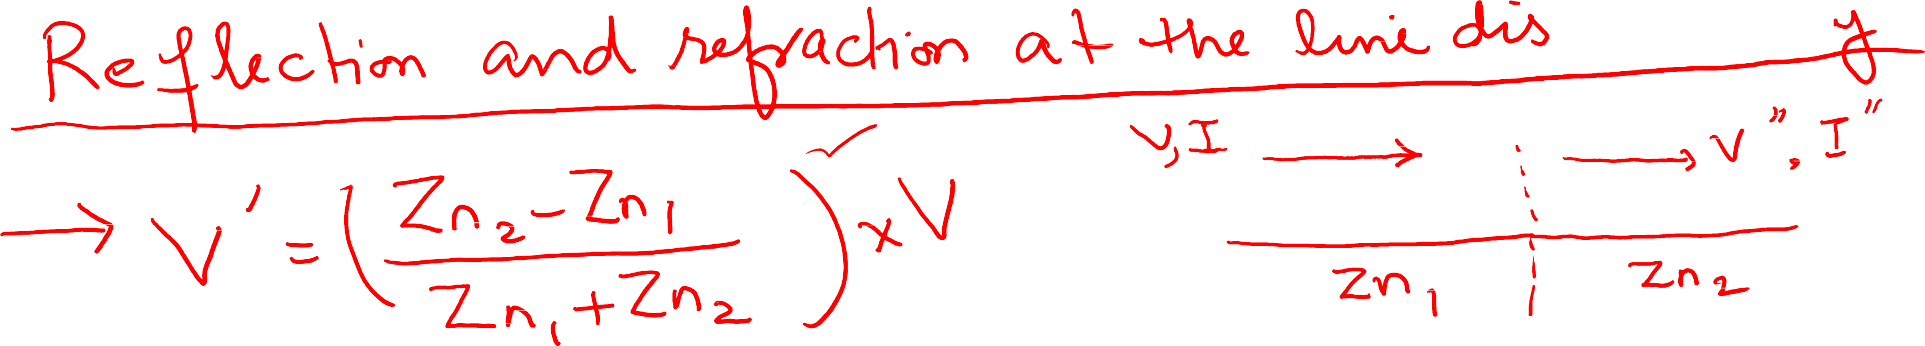 Reflection and refraction at the line dis y
V, I → → V'', I''
→ V' = (Zn₂ - Zn₁ / Zn₁ + Zn₂) × V
Zn₁ Zn₂